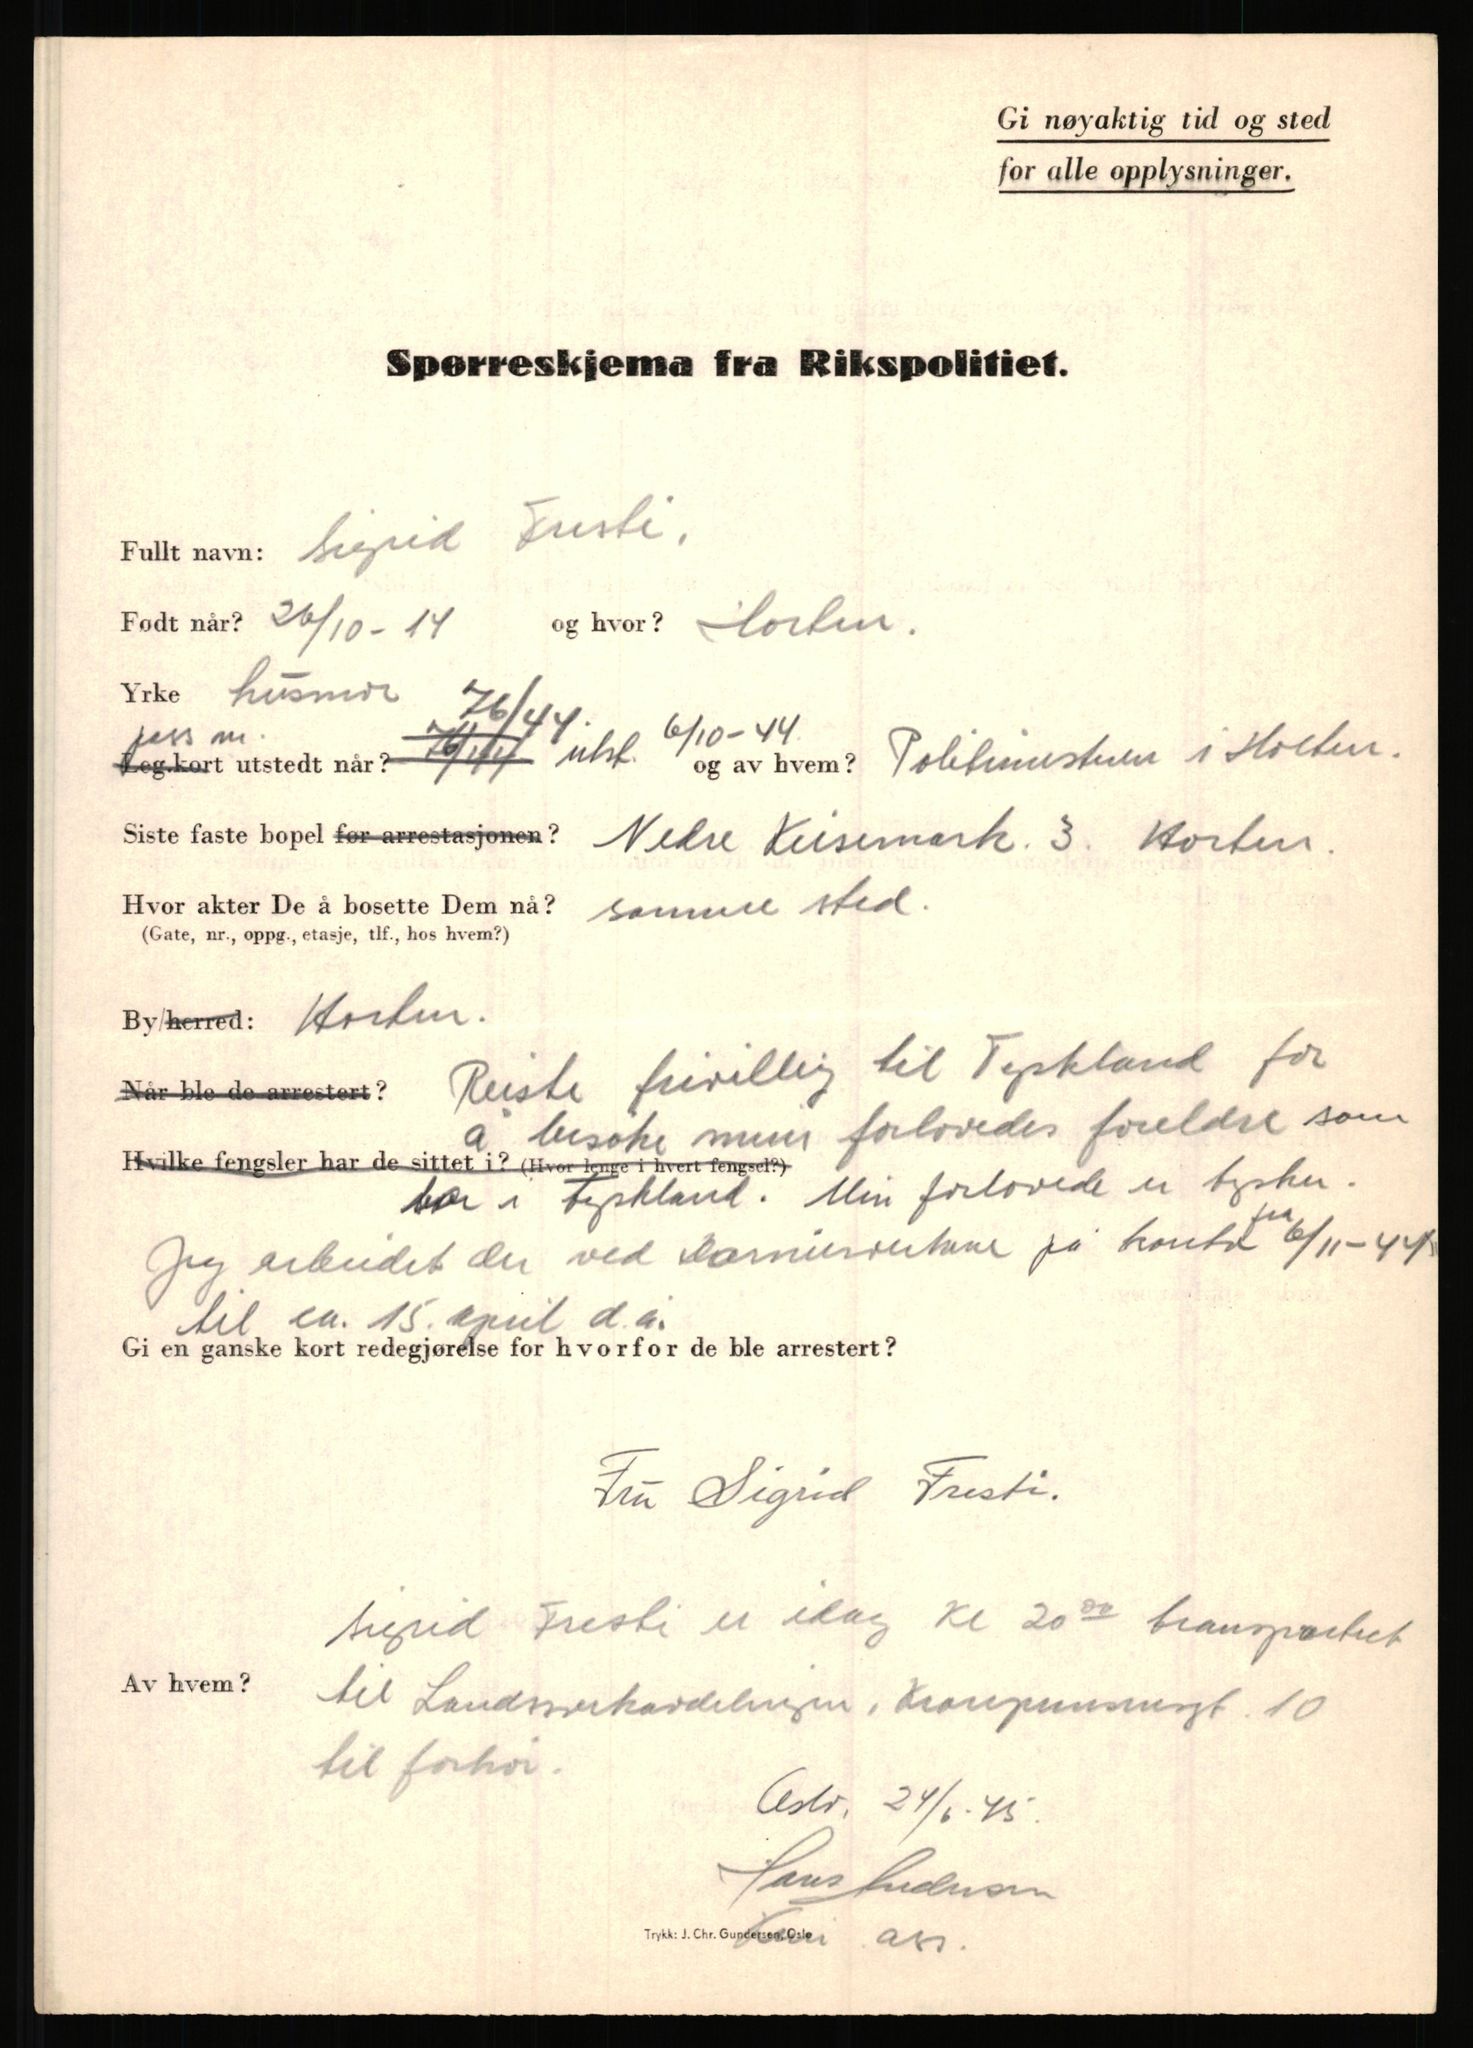 Gi nøyaktig tid og sted
for alle opplysninger.
Spørreskjema fra Rikspolitiet.
Fullt navn: Sigrid Fresti.
Født når? 26/10-14 og hvor? Horten.
Yrke husmor
pass nr. 76/44. 6/10-44.
Leg.kort utstedt når? utst. og av hvem? Politimesteren i Horten.
Siste faste bopel før arrestasjonen? Nedre Keisemark. 3. Horten.
Hvor akter De å bosette Dem nå? samme sted.
(Gate, nr., oppg., etasje, tlf., hos hvem?)
By/herred: Horten.
Når ble de arrestert? Reiste frivillig til Tyskland for
å besøke min forlovedes foreldre som
Hvilke fengsler har de sittet i? (Hvor lenge i hvert fengsel?)
bor i Tyskland. Min forlovede er tysker.
Jeg arbeidet der ved på kontor fra 6/11-44
til ca. 15. april d.å.
Gi en ganske kort redegjørelse for hvorfor de ble arrestert?
Fru Sigrid Fresti.
Sigrid Fresti er idag kl 20⁰⁰ transportert
Av hvem? til Landssvikavdelingen, 10
til forhør.
Oslo, 24/6-45.
Hans Andersen
ass.
Trykk: J. Chr. Gundersen, Oslo